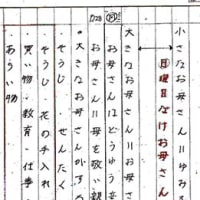 小さなお母さん=ゆみ子
日曜日だけお母さん
大きなお母さん=
お母さん=母を敬い親
お母さんはどうゆう
○大きなお母さんがする
そうじ・せんたく
そうじ・花の手入れ
買い物・教育・仕事
あらい物